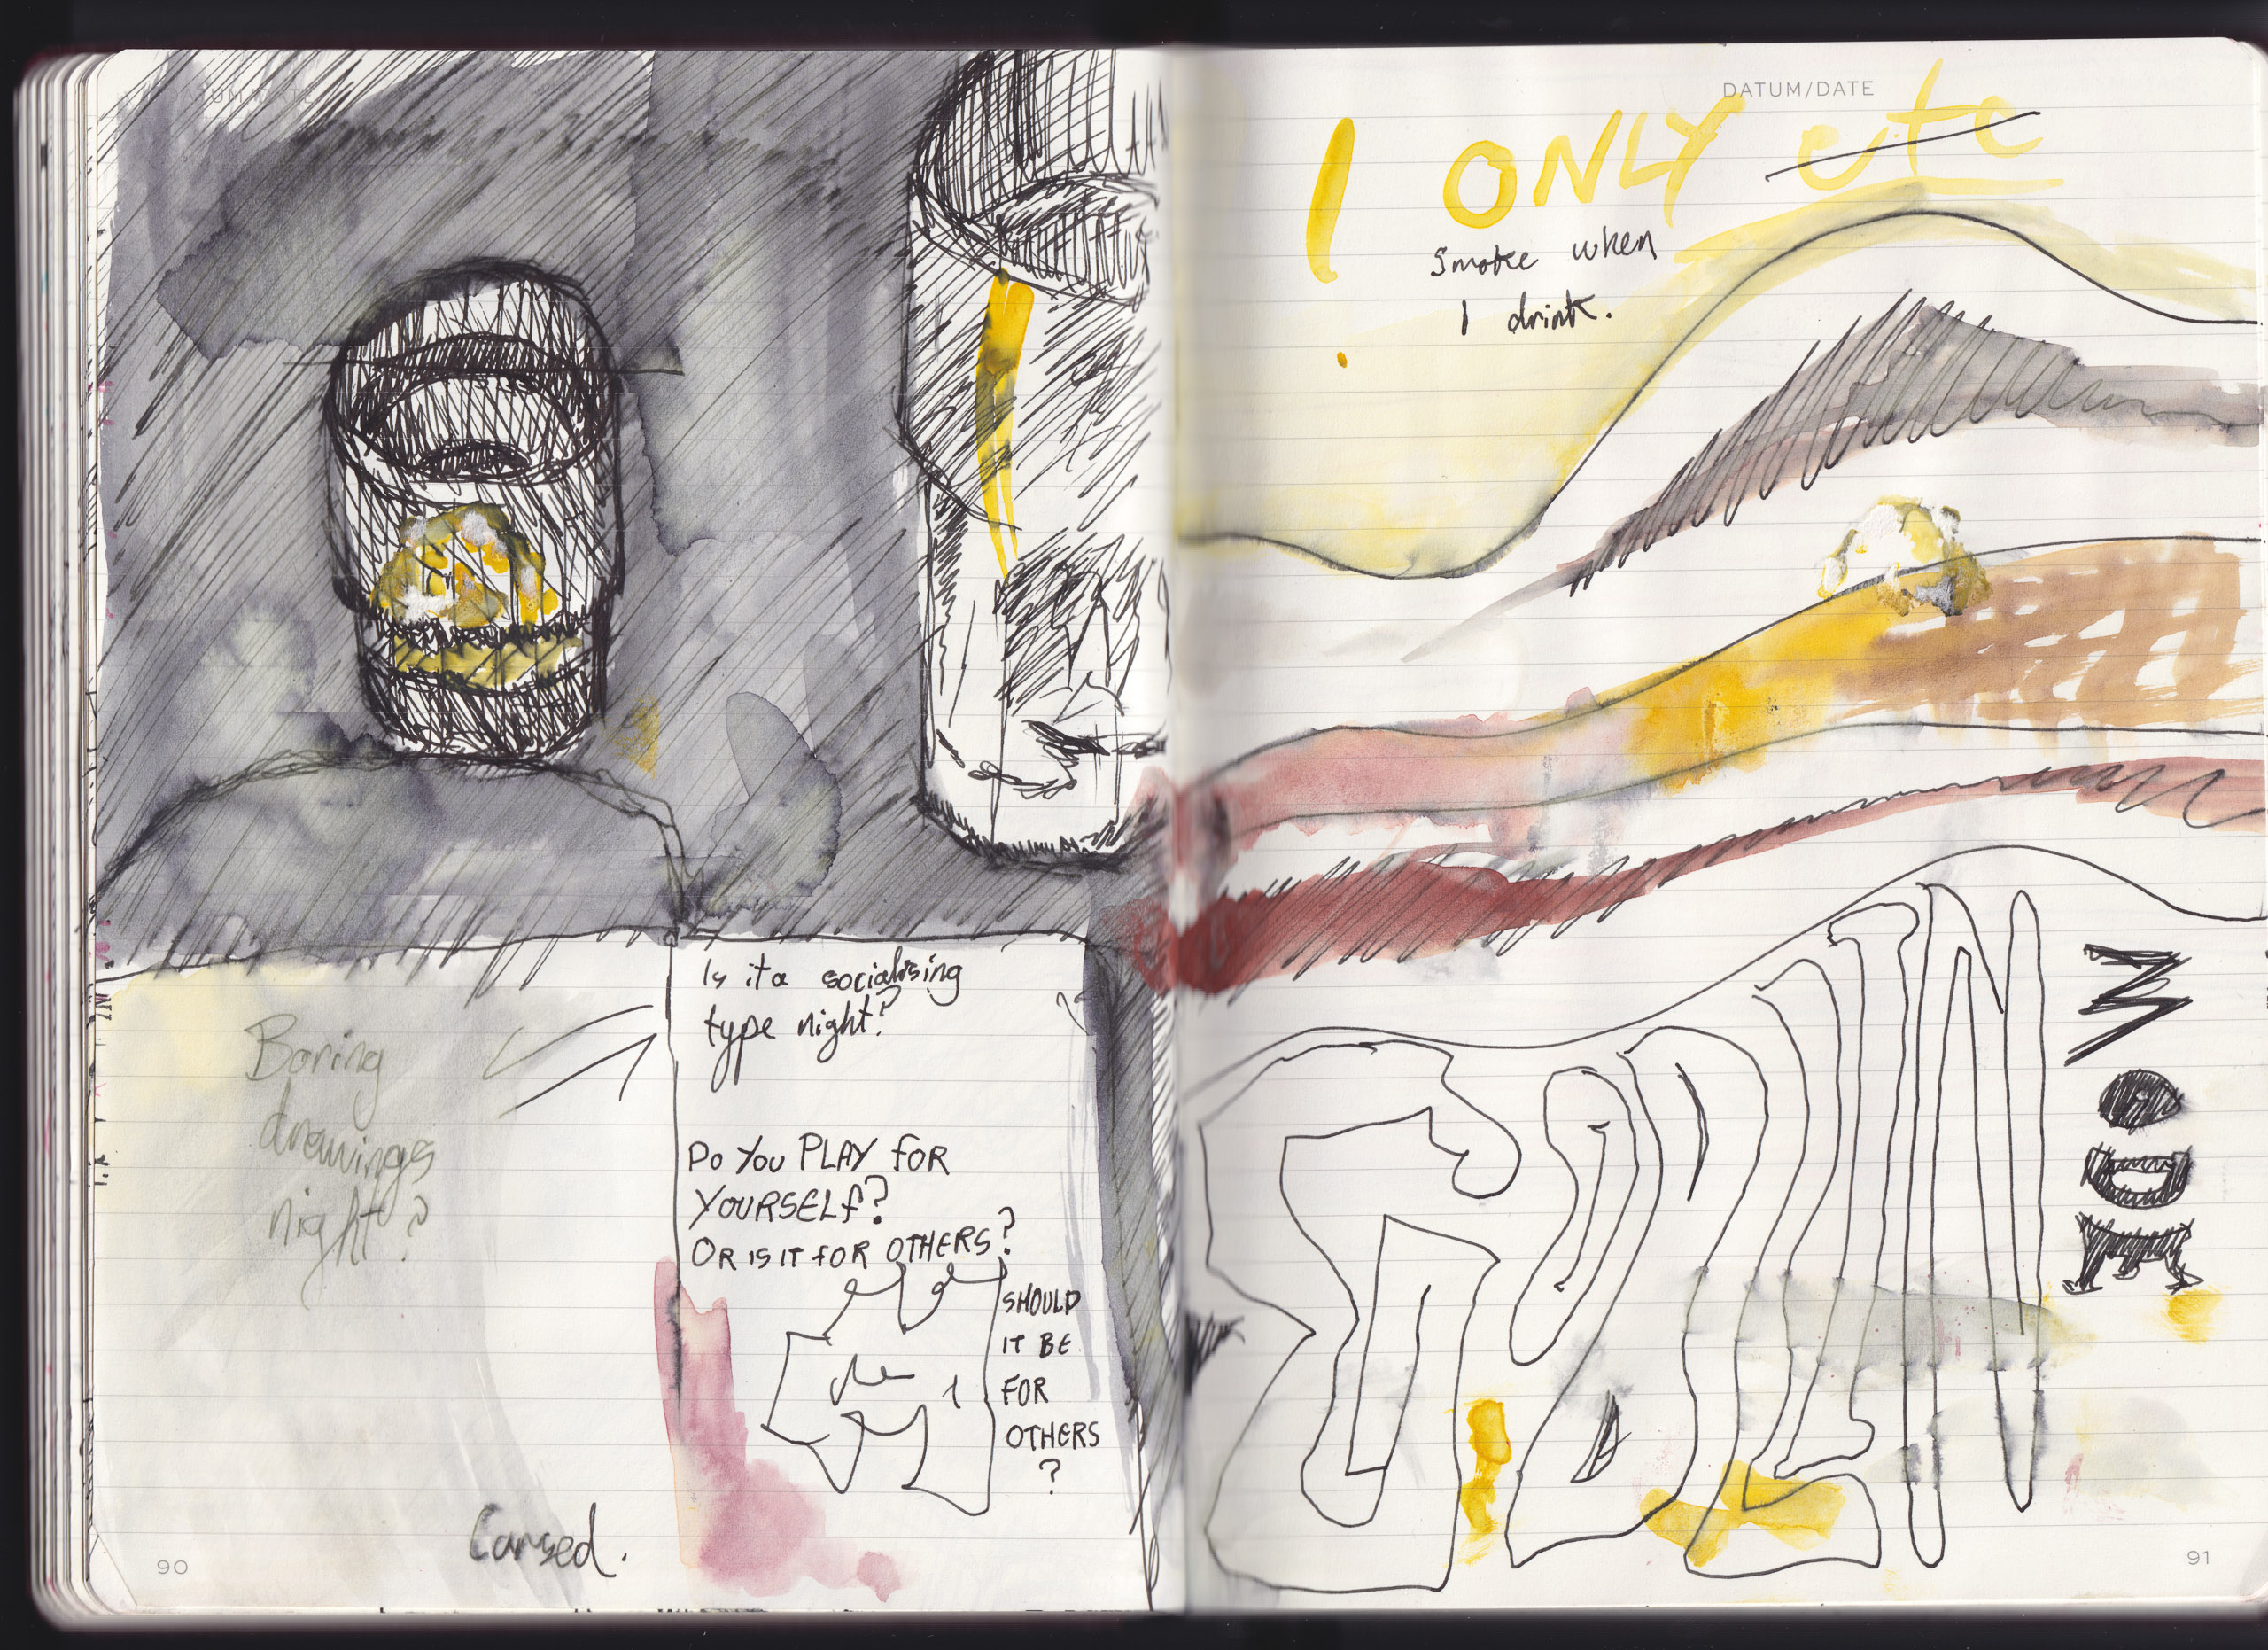 DATUM/DATE
Boring
drawings
night?
Is it a socialising
type night?
DO YOU PLAY FOR
YOURSELF?
OR IS IT FOR OTHERS?
SHOULD
IT BE
FOR
OTHERS
?
90
DATUM/DATE
I ONLY etc
Smoke when
I drink.
GOBLIN
MODE
91